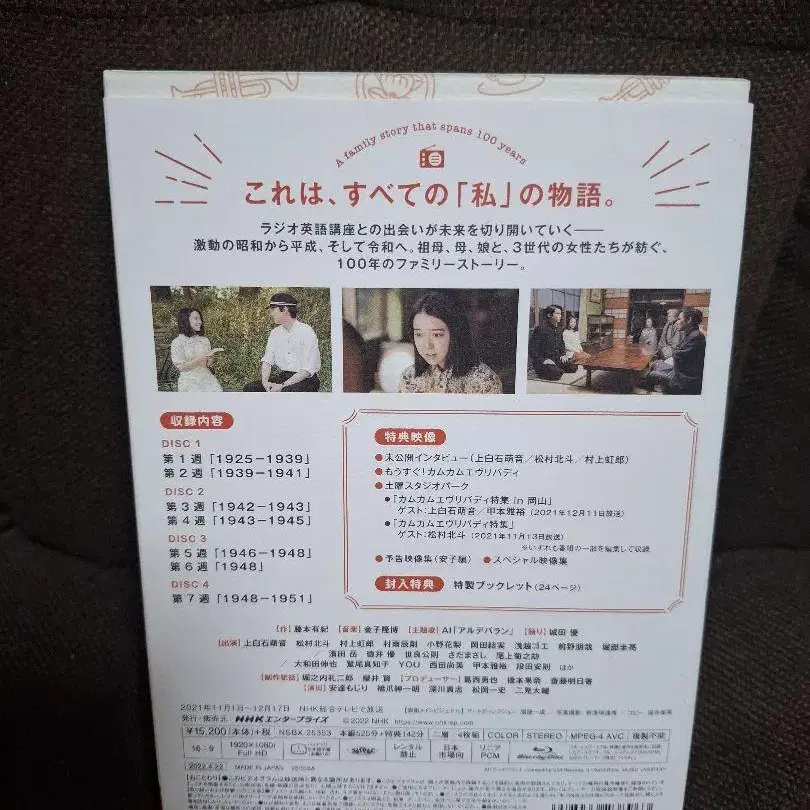 A family story that spans 100 years
これは、すべての「私」の物語。
ラジオ英語講座との出会いが未来を切り開いていく――
激動の昭和から平成、そして令和へ。祖母、母、娘と、3世代の女性たちが紡ぐ、
100年のファミリーストーリー。
収録内容
DISC 1
第1週「1925-1939」
第2週「1939-1941」
DISC 2
第3週「1942-1943」
第4週「1943-1945」
DISC 3
第5週「1946-1948」
第6週「1948」
DISC 4
第7週「1948-1951」
特典映像
●未公開インタビュー(上白石萌音/松村北斗/村上虹郎)
●もうすぐ!カムカムエヴリバディ
●土曜スタジオパーク
●「カムカムエヴリバディ特集 in 岡山」
ゲスト:上白石萌音/甲本雅裕(2021年12月11日放送)
●「カムカムエヴリバディ特集」
ゲスト:松村北斗(2021年11月13日放送)
※いずれも番組の一部を編集して収録
●予告映像集(安子編) ●スペシャル映像集
封入特典 特製ブックレット(24ページ)
[作]藤本有紀 [音楽]金子隆博 [主題歌]AI「アルデバラン」 [語り]城田 優
[出演]上白石萌音 松村北斗 村上虹郎 村雨辰剛 小野花梨 岡田結実 浅越ゴエ 前野朋哉 堀部圭亮
/濱田 岳 徳井 優 世良公則 さだまさし 尾上菊之助
/大和田伸也 鷲尾真知子 YOU 西田尚美 甲本雅裕 段田安則 ほか
[制作統括]堀之内礼二郎 櫻井 賢 [プロデューサー]葛西勇也 橋本果奈 齋藤明日香
[演出]安達もじり 橋爪紳一朗 深川貴志 松岡一史 二見大輔
2021年11月1日~12月17日 NHK総合テレビで放送
発行・販売元 NHKエンタープライズ ©2022 NHK https://www.nhk-ep.com
¥15,200(本体)+税 NSBX-25353 本編525分+特典142分 二層 4枚組 COLOR STEREO MPEG-4 AVC 複製不能
16:9 1920×1080i Full HD レンタル禁止 日本市場向 リニアPCM Blu-ray Disc
2022.4.22 MADE IN JAPAN